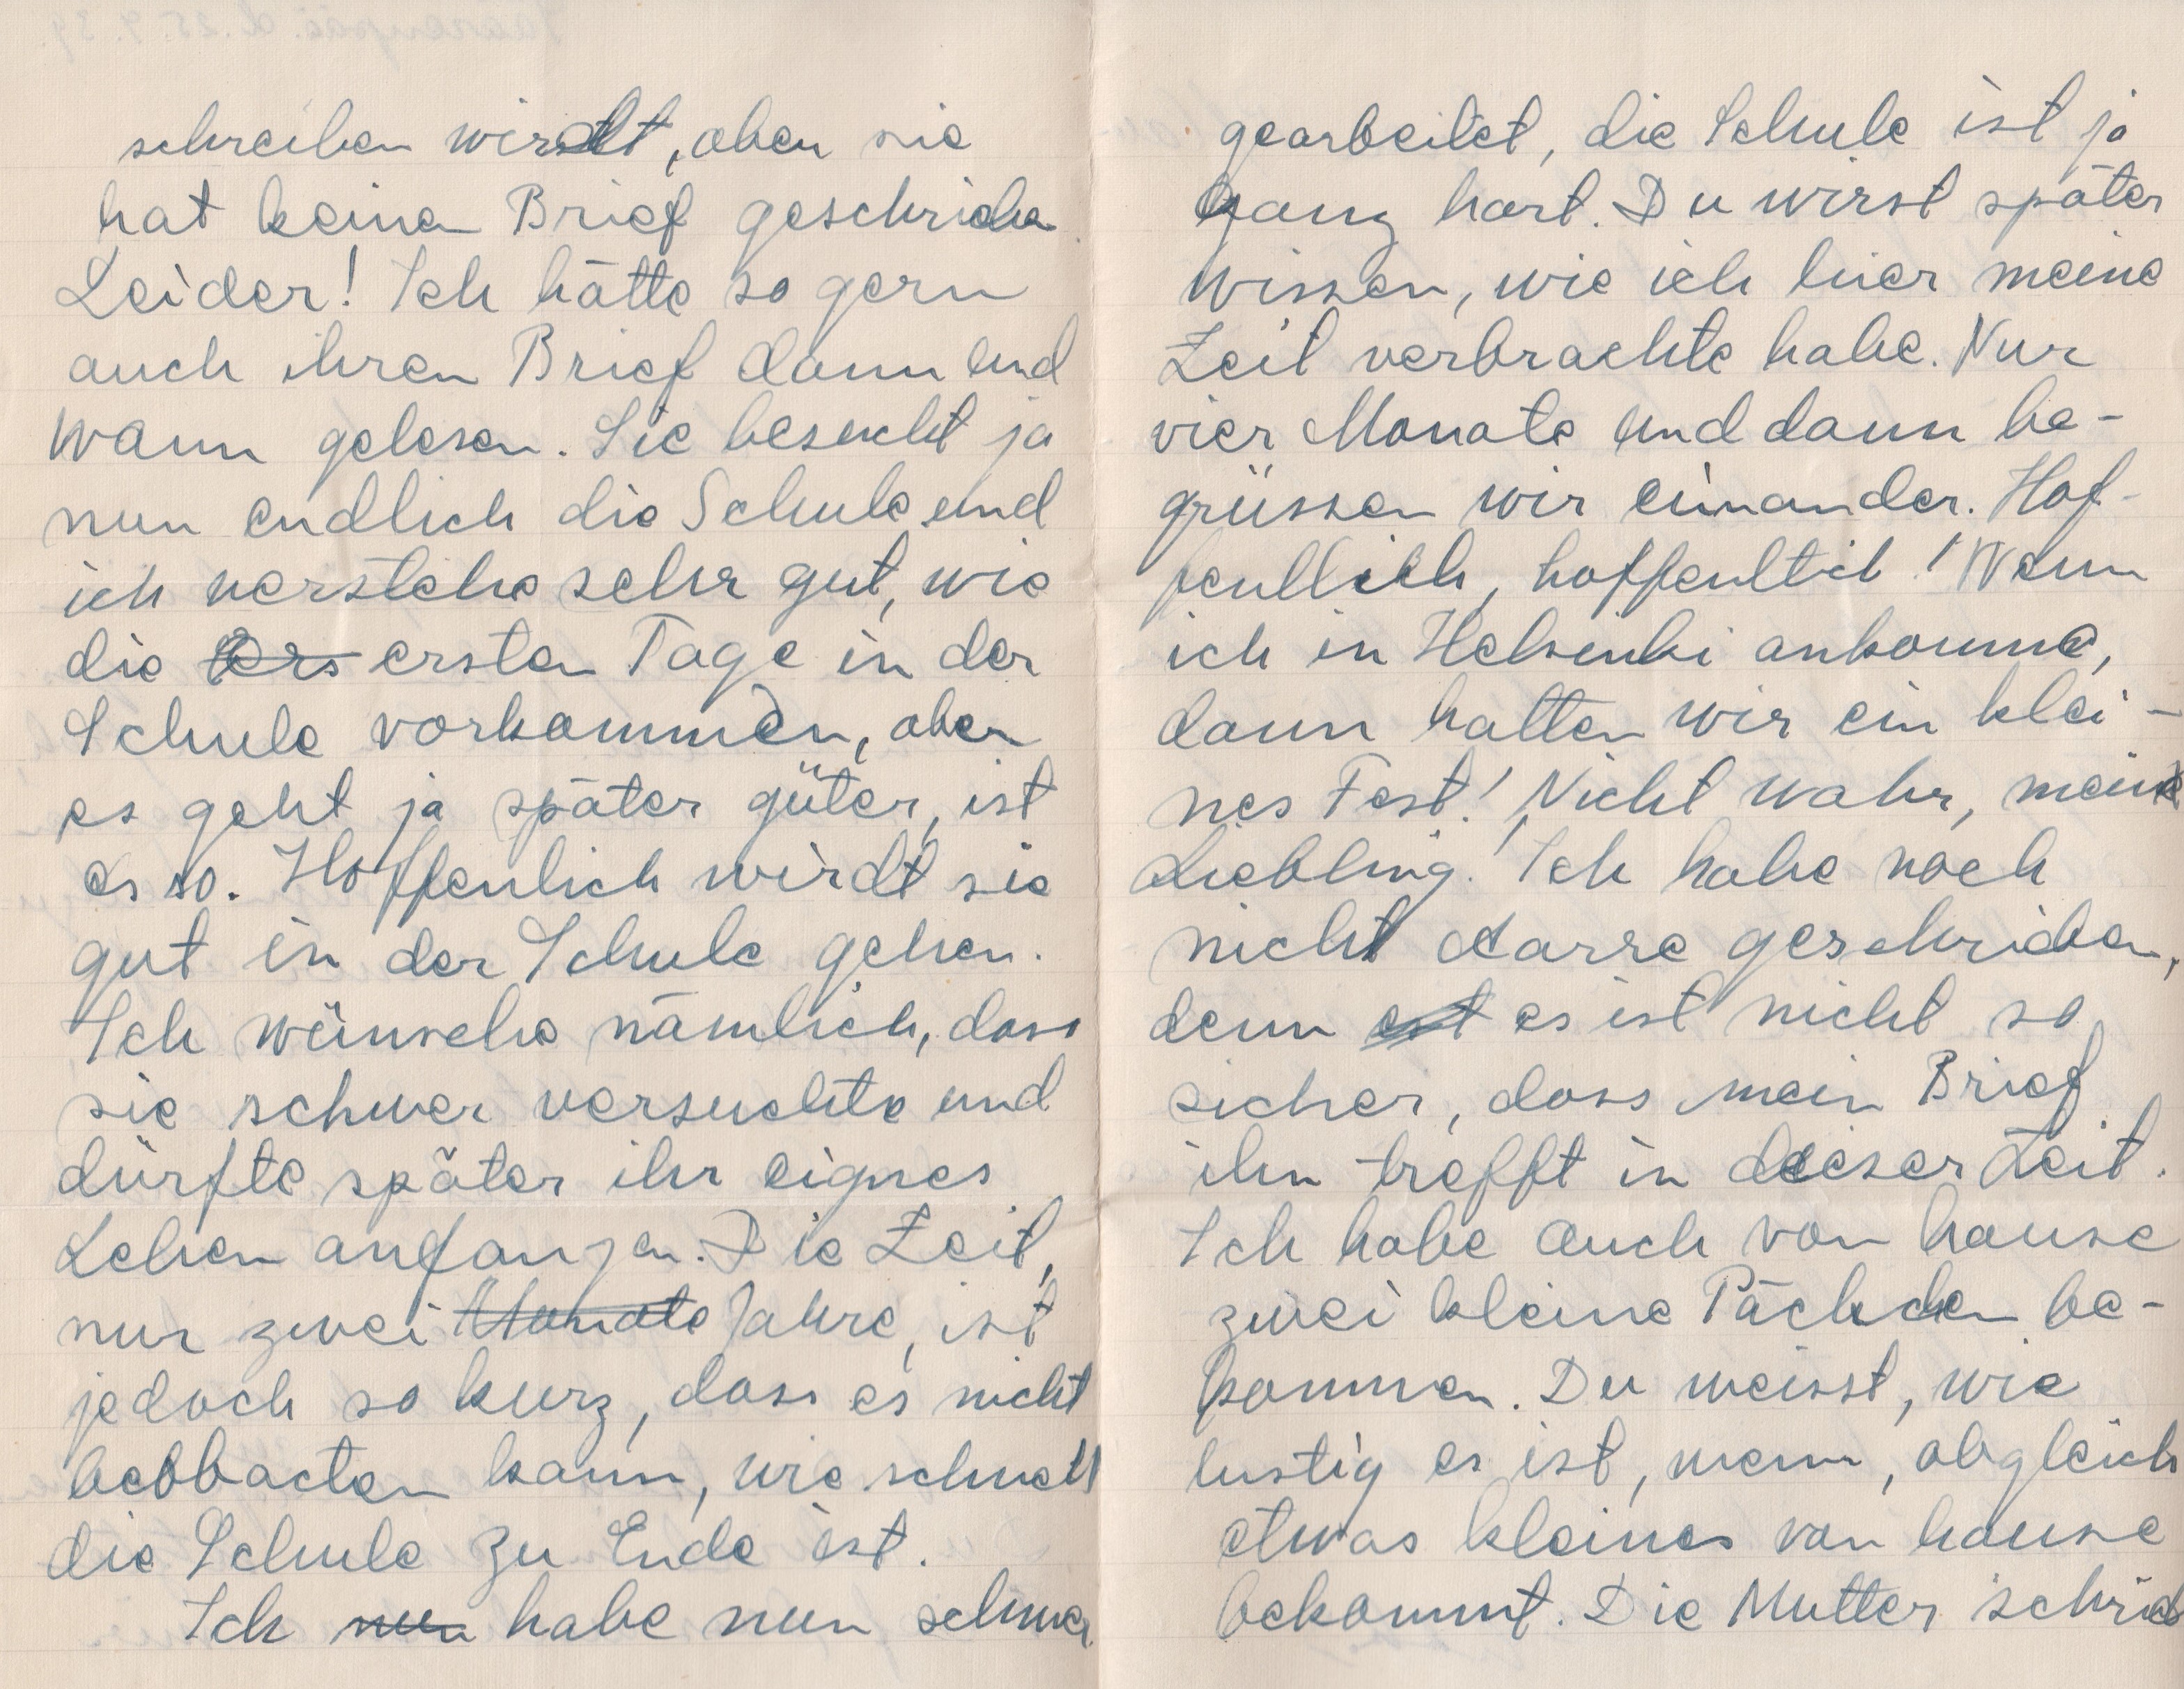 schreiben wirdt, aber sie
hat keinen Brief geschrieben
Leider! Ich hätte so gern
auch ihren Brief dann und
wann gelesen. Sie besucht ja
nun endlich die Schule und
ich verstehe sehr gut, wie
die ers ersten Tage in der
Schule vorkommen, aber
es geht ja später güter, ist
es so. Hoffenlich wirdt sie
gut in der Schule gehen.
Ich wünsche nämlich, dass
sie schwer versuchte und
dürfte später ihr eignes
Leben anfangen. Die Zeit,
nur zwei Monate Jahre, ist
jedoch so kurz, dass es nicht
beobacten kann, wie schnell
die Schule zu Ende ist.
Ich nun habe nun schwer
gearbeitet, die Schule ist ja
ganz hart. Du wirst später
wissen, wie ich hier meine
Zeit verbrachte habe. Nur
vier Monate und dann be-
grüssen wir einander. Hof-
fentlich, hoffentlich! Wenn
ich in Helsinki ankomme,
dann halten wir ein klei-
nes Fest! Nicht wahr, meine
Liebling! Ich habe noch
nicht Aarre geschrieben,
denn est es ist nicht so
sicher, dass mein Brief
ihn trefft in dieser Zeit.
Ich habe auch von hause
zwei kleine Päckchen be-
kommen. Du weisst, wie
lustig es ist, wenn, obgleich
etwas kleines von hause
bekommt. Die Mutter schrieb